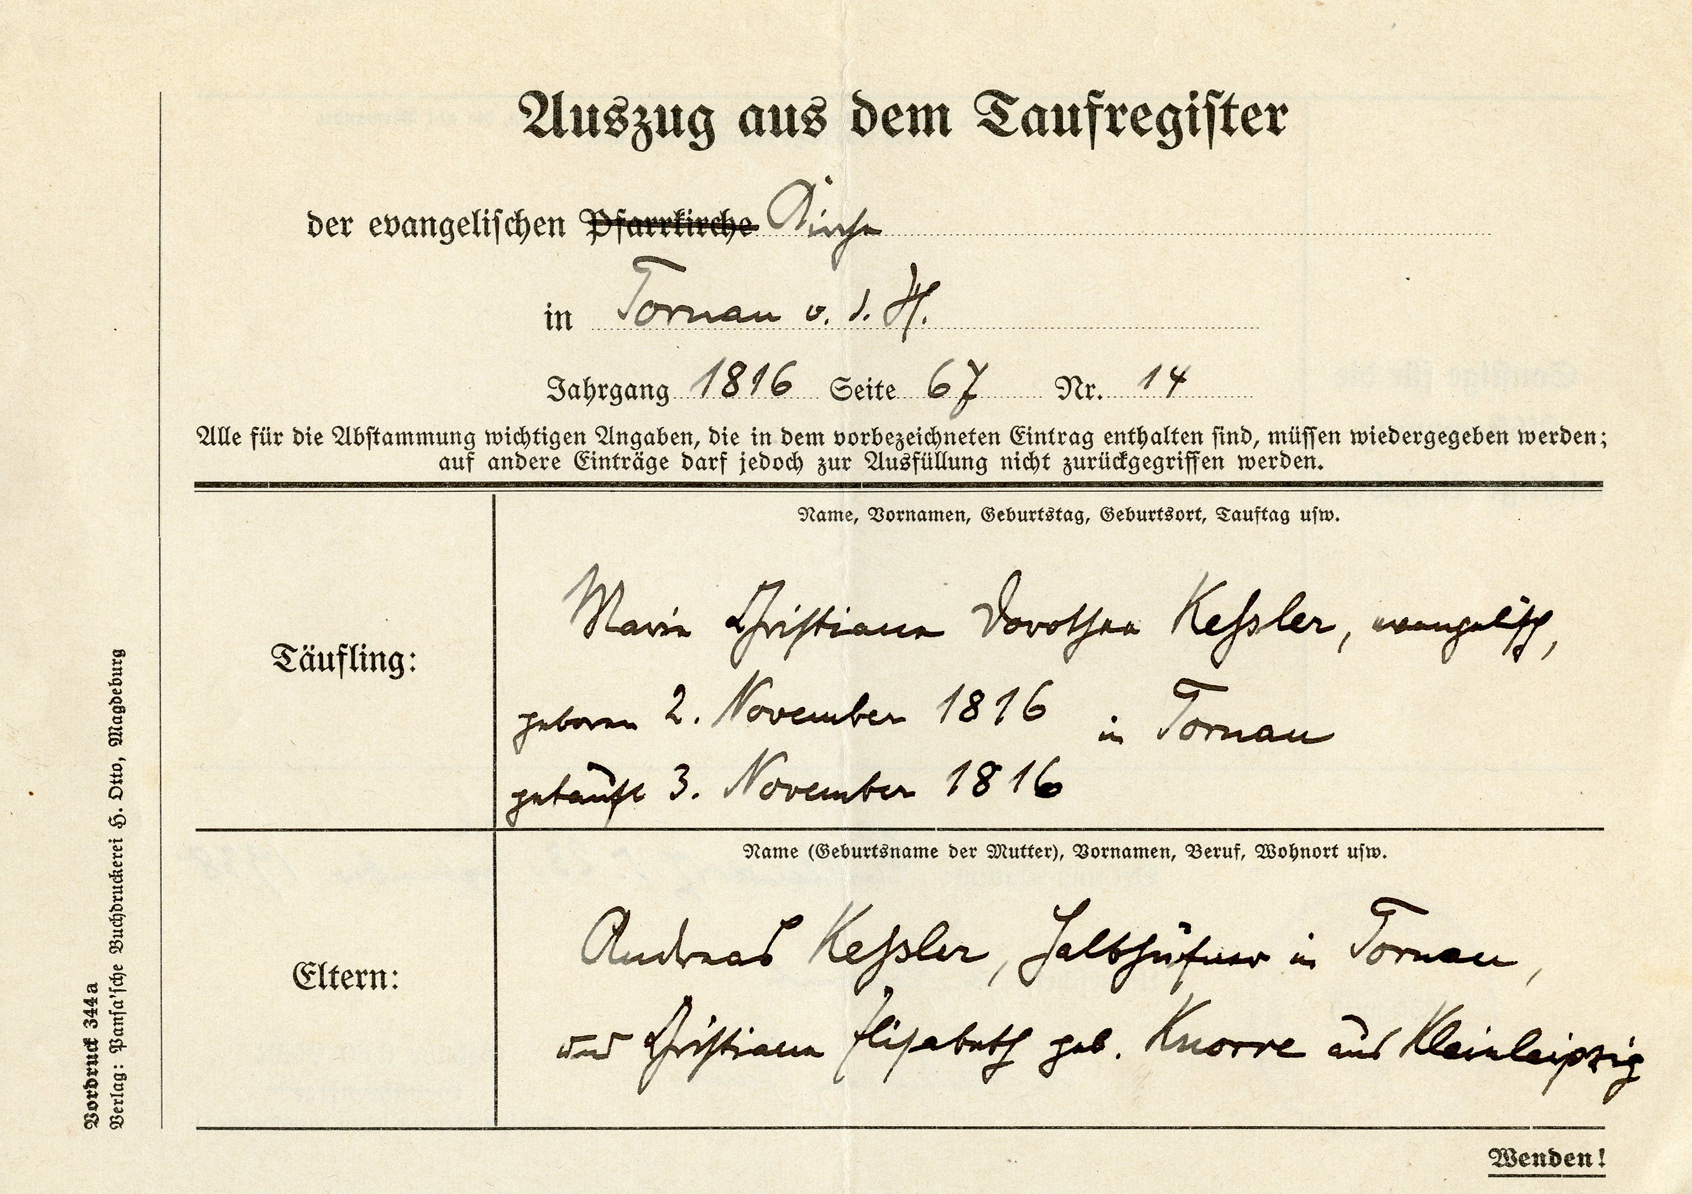 Auszug aus dem Taufregister
der evangelischen Pfarrkirche Kirche
in Tornau v. d. H.
Jahrgang 1816 Seite 67 Nr. 14
Alle für die Abstammung wichtigen Angaben, die in dem vorbezeichneten Eintrag enthalten sind, müssen wiedergegeben werden;
auf andere Einträge darf jedoch zur Ausfüllung nicht zurückgegriffen werden.
Name, Vornamen, Geburtstag, Geburtsort, Tauftag usw.
Täufling:
Marie Christiane Dorothee Keßler, evangelisch,
geboren 2. November 1816 in Tornau
getauft 3. November 1816
Name (Geburtsname der Mutter), Vornamen, Beruf, Wohnort usw.
Eltern:
Andreas Keßler, Halbhüfner in Tornau,
und Christiane Elisabeth geb. Knorre aus Kleinleipzig
Wenden!
Vordruck 344a
Verlag: Pansa'sche Buchdruckerei H. Otto, Magdeburg